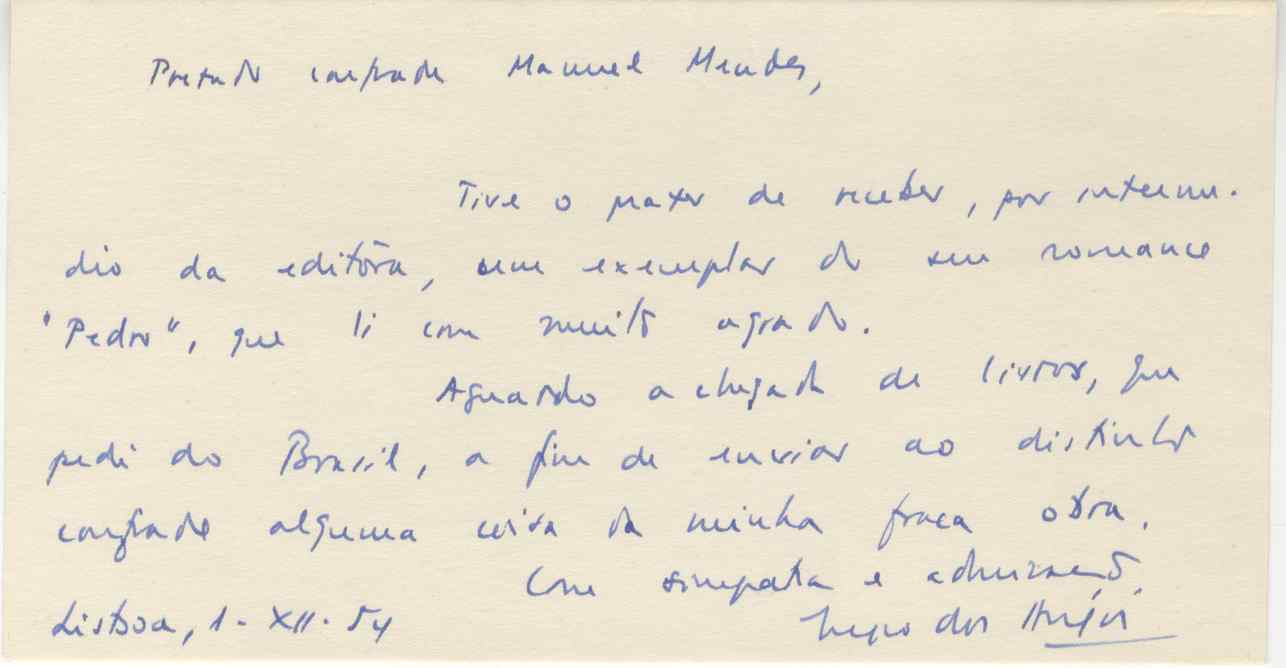 Prezado confrade Manuel Mendes,
Tive o prazer de receber, por intermé-
dio da editôra, um exemplar do seu romance
"Pedro", que li com muito agrado.
Aguardo a chegada de livros, que
pedi do Brasil, a fim de enviar ao distinto
confrade alguma coisa da minha fraca obra.
Com simpatia e admiração,
Lisboa, 1-XII-54 dos Anjos